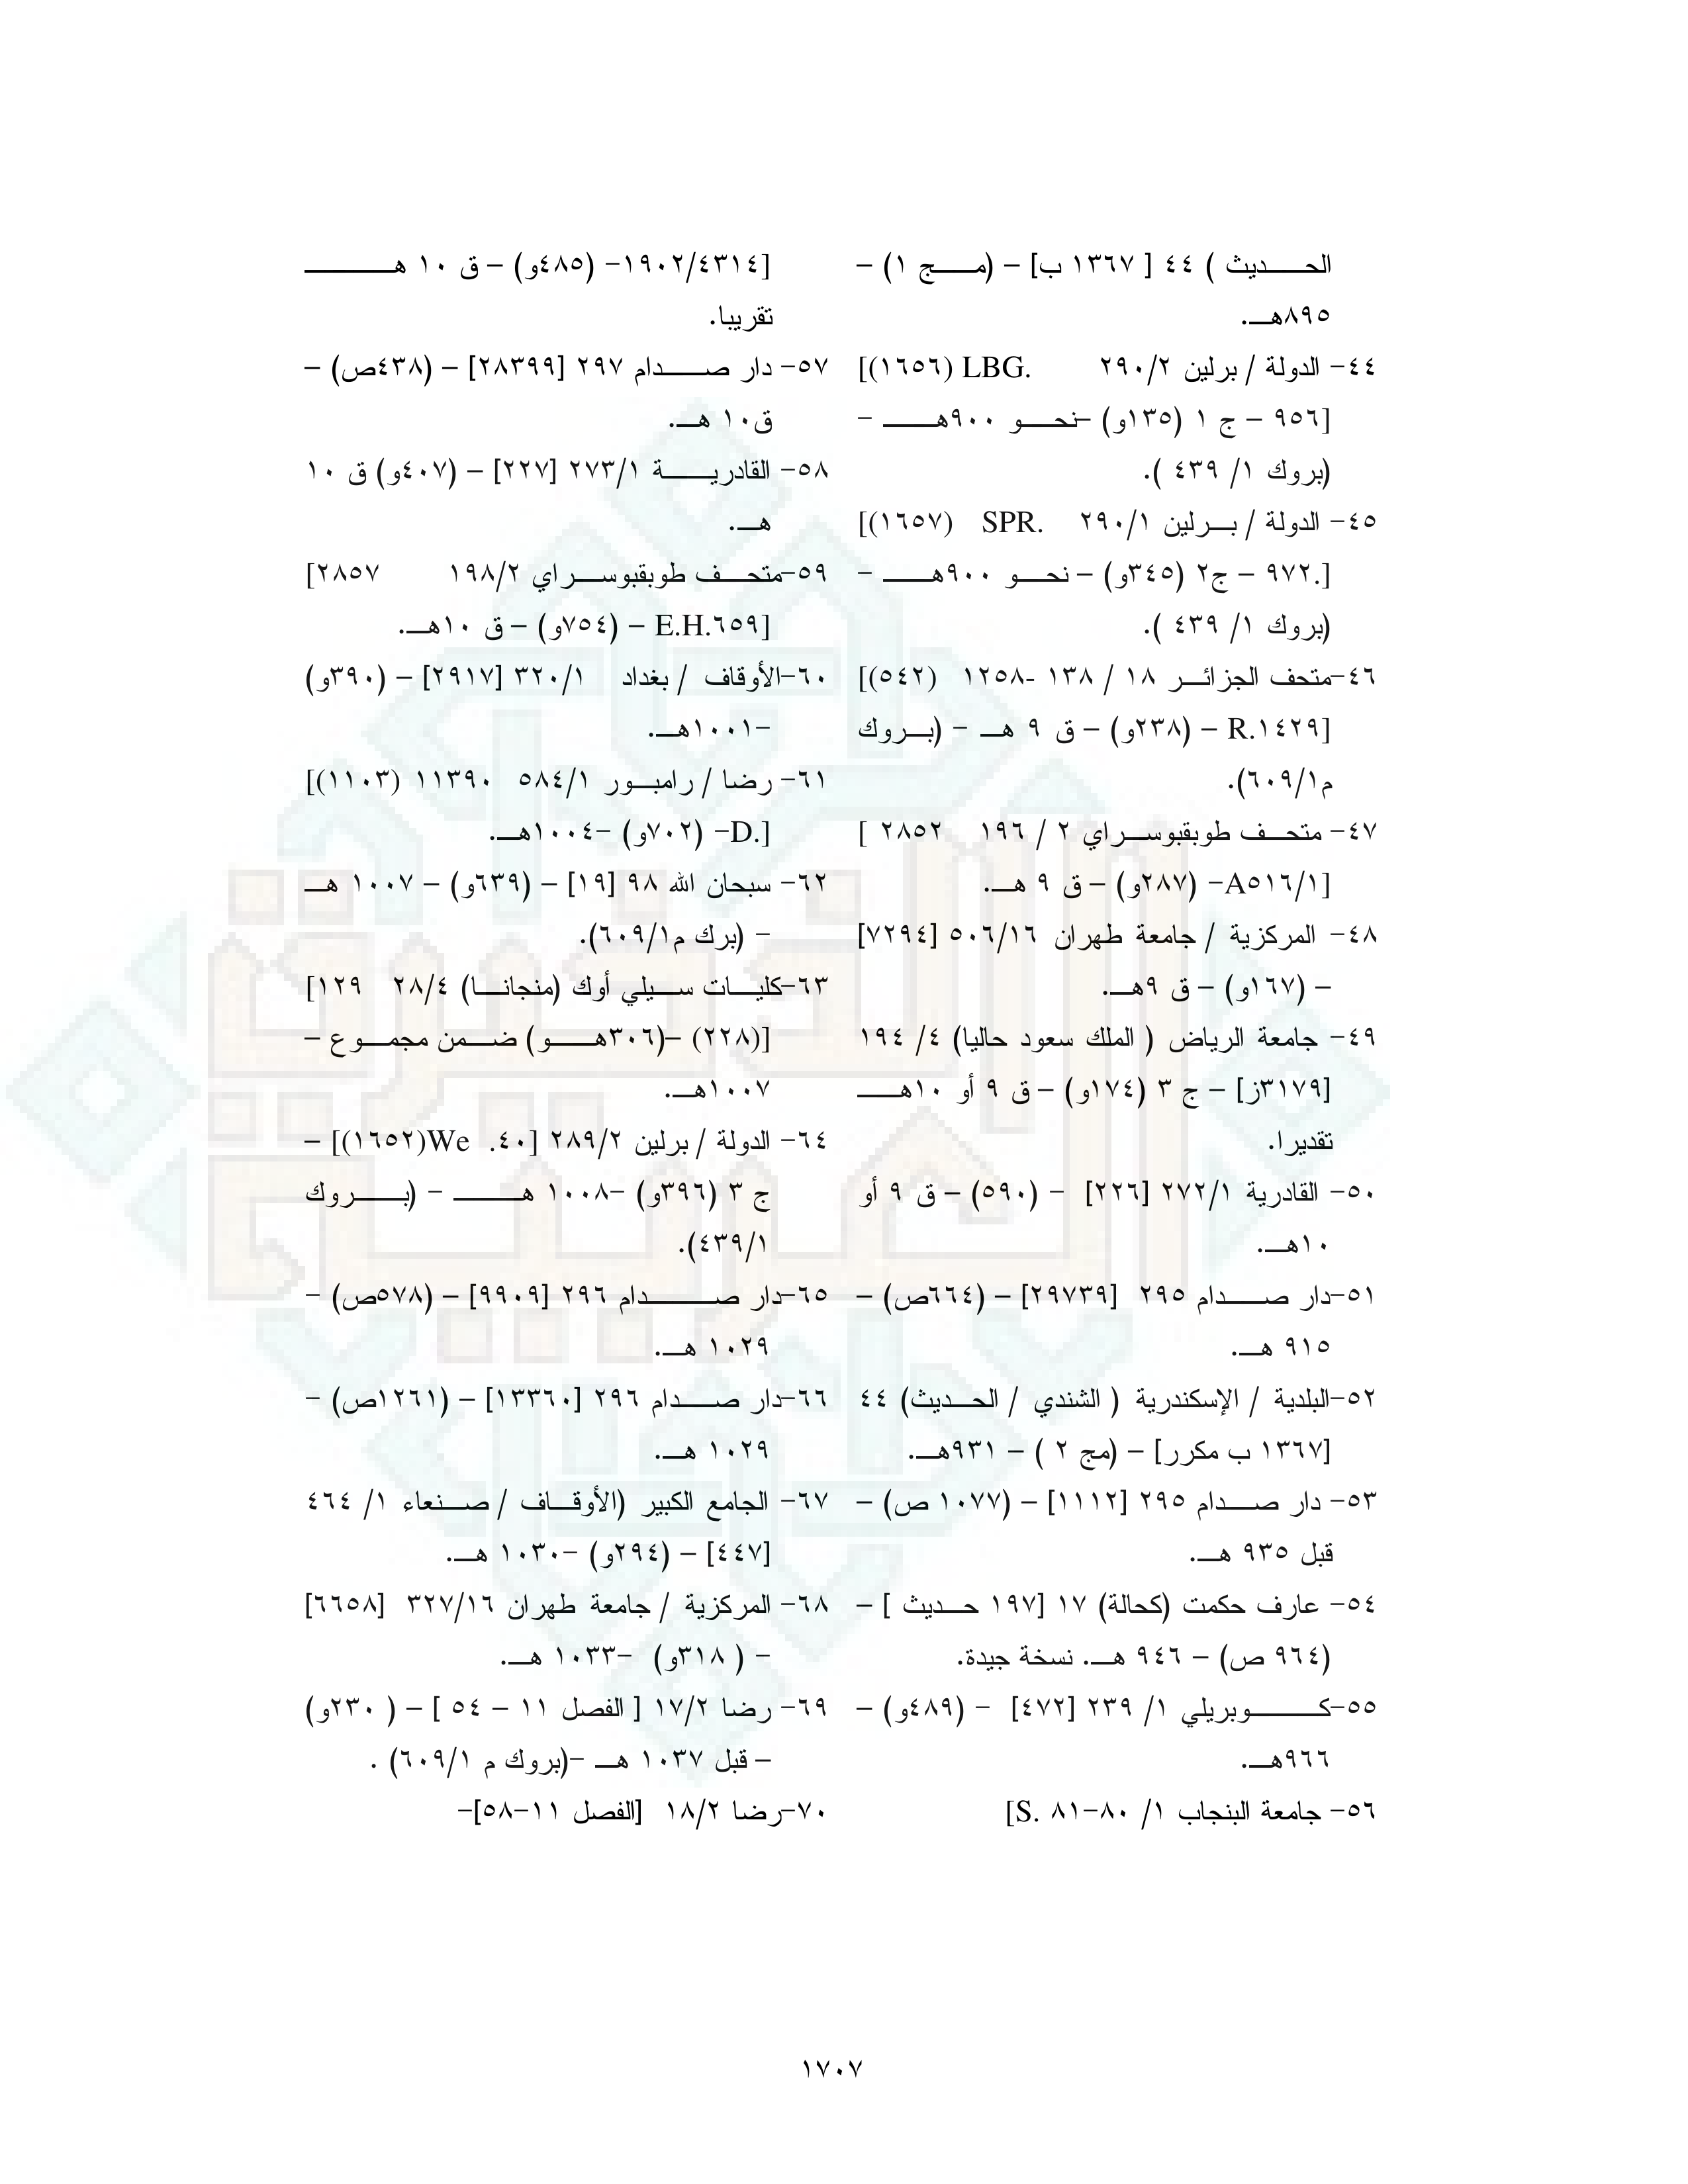 الحديث ) ٤٤ [ ١٣٦٧ ب] – (مج ١) –
٨٩٥هـ.
٤٤- الدولة / برلين ٢٩٠/٢ LBG. (١٦٥٦)]
[٩٥٦ – ج ١ (١٣٥و) –نحو ٩٠٠هـ -
(بروك ١/ ٤٣٩ ).
٤٥- الدولة / برلين ٢٩٠/١ SPR. (١٦٥٧)]
[.٩٧٢ – ج٢ (٣٤٥و) – نحو ٩٠٠هـ -
(بروك ١/ ٤٣٩ ).
٤٦-متحف الجزائر ١٨ / ١٣٨ -١٢٥٨ (٥٤٢)]
[R.١٤٢٩ – (٢٣٨و) – ق ٩ هـ - (بروك
م٦٠٩/١).
٤٧- متحف طوبقبوسراي ٢ / ١٩٦ ٢٨٥٢ ]
[A٥١٦/١- (٢٨٧و) – ق ٩ هـ.
٤٨- المركزية / جامعة طهران ٥٠٦/١٦ [٧٢٩٤]
– (١٦٧و) – ق ٩هـ.
٤٩- جامعة الرياض ( الملك سعود حاليا) ٤/ ١٩٤
[٣١٧٩ز] – ج ٣ (١٧٤و) – ق ٩ أو ١٠هـ
تقديرا.
٥٠- القادرية ٢٧٢/١ [٢٢٦] - (٥٩٠) – ق ٩ أو
١٠هـ.
٥١-دار صدام ٢٩٥ [٢٩٧٣٩] – (٦٦٤ص) –
٩١٥ هـ.
٥٢-البلدية / الإسكندرية ( الشندي / الحديث) ٤٤
[١٣٦٧ ب مكرر] – (مج ٢ ) – ٩٣١هـ.
٥٣- دار صدام ٢٩٥ [١١١٢] – (١٠٧٧ ص) –
قبل ٩٣٥ هـ.
٥٤- عارف حكمت (كحالة) ١٧ [١٩٧ حديث ] –
(٩٦٤ ص) – ٩٤٦ هـ. نسخة جيدة.
٥٥-كوبريلي ١/ ٢٣٩ [٤٧٢] - (٤٨٩و) –
٩٦٦هـ.
٥٦- جامعة البنجاب ١/ ٨٠-٨١ S.]
[١٩٠٢/٤٣١٤- (٤٨٥و) – ق ١٠ هـ
تقريبا.
٥٧- دار صدام ٢٩٧ [٢٨٣٩٩] – (٤٣٨ص) –
ق١٠ هـ.
٥٨- القادرية ٢٧٣/١ [٢٢٧] – (٤٠٧و) ق ١٠
هـ.
٥٩-متحف طوبقبوسراي ١٩٨/٢ ٢٨٥٧]
[E.H.٦٥٩ – (٧٥٤و) – ق ١٠هـ.
٦٠-الأوقاف / بغداد ٣٢٠/١ [٢٩١٧] – (٣٩٠و)
-١٠٠١هـ.
٦١- رضا / رامبور ٥٨٤/١ ١١٣٩٠ (١١٠٣)]
[.D- (٧٠٢و) -١٠٠٤هـ.
٦٢- سبحان الله ٩٨ [١٩] – (٦٣٩و) – ١٠٠٧ هـ
- (برك م٦٠٩/١).
٦٣-كليات سيلي أوك (منجانا) ٢٨/٤ ١٢٩]
[(٢٢٨) –(٣٠٦هو) ضمن مجموع –
١٠٠٧هـ.
٦٤- الدولة / برلين ٢٨٩/٢ [٤٠. We(١٦٥٢)] –
ج ٣ (٣٩٦و) -١٠٠٨ هـ - (بروك
٤٣٩/١).
٦٥-دار صدام ٢٩٦ [٩٩٠٩] – (٥٧٨ص) -
١٠٢٩ هـ.
٦٦-دار صدام ٢٩٦ [١٣٣٦٠] – (١٢٦١ص) -
١٠٢٩ هـ.
٦٧- الجامع الكبير (الأوقاف / صنعاء ١/ ٤٦٤
[٤٤٧] – (٢٩٤و) -١٠٣٠ هـ.
٦٨- المركزية / جامعة طهران ٣٢٧/١٦ [٦٦٥٨]
- ( ٣١٨و) -١٠٣٣ هـ.
٦٩- رضا ١٧/٢ [ الفصل ١١ – ٥٤ ] – ( ٢٣٠و)
– قبل ١٠٣٧ هـ -(بروك م ٦٠٩/١) .
٧٠-رضا ١٨/٢ [الفصل ١١-٥٨]-
١٧٠٧